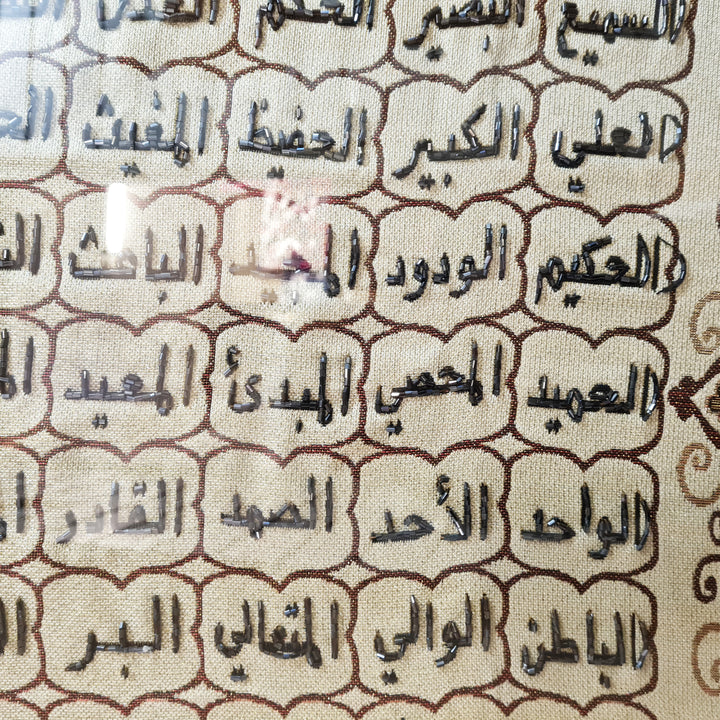 السميع البصير
العلي الكبير الحفيظ المغيث
الحكيم الودود المجيد الباعث
الحميد المحصي المبدئ المعيد
الواحد الأحد الصمد القادر
الباطن الوالي المتعالي البر